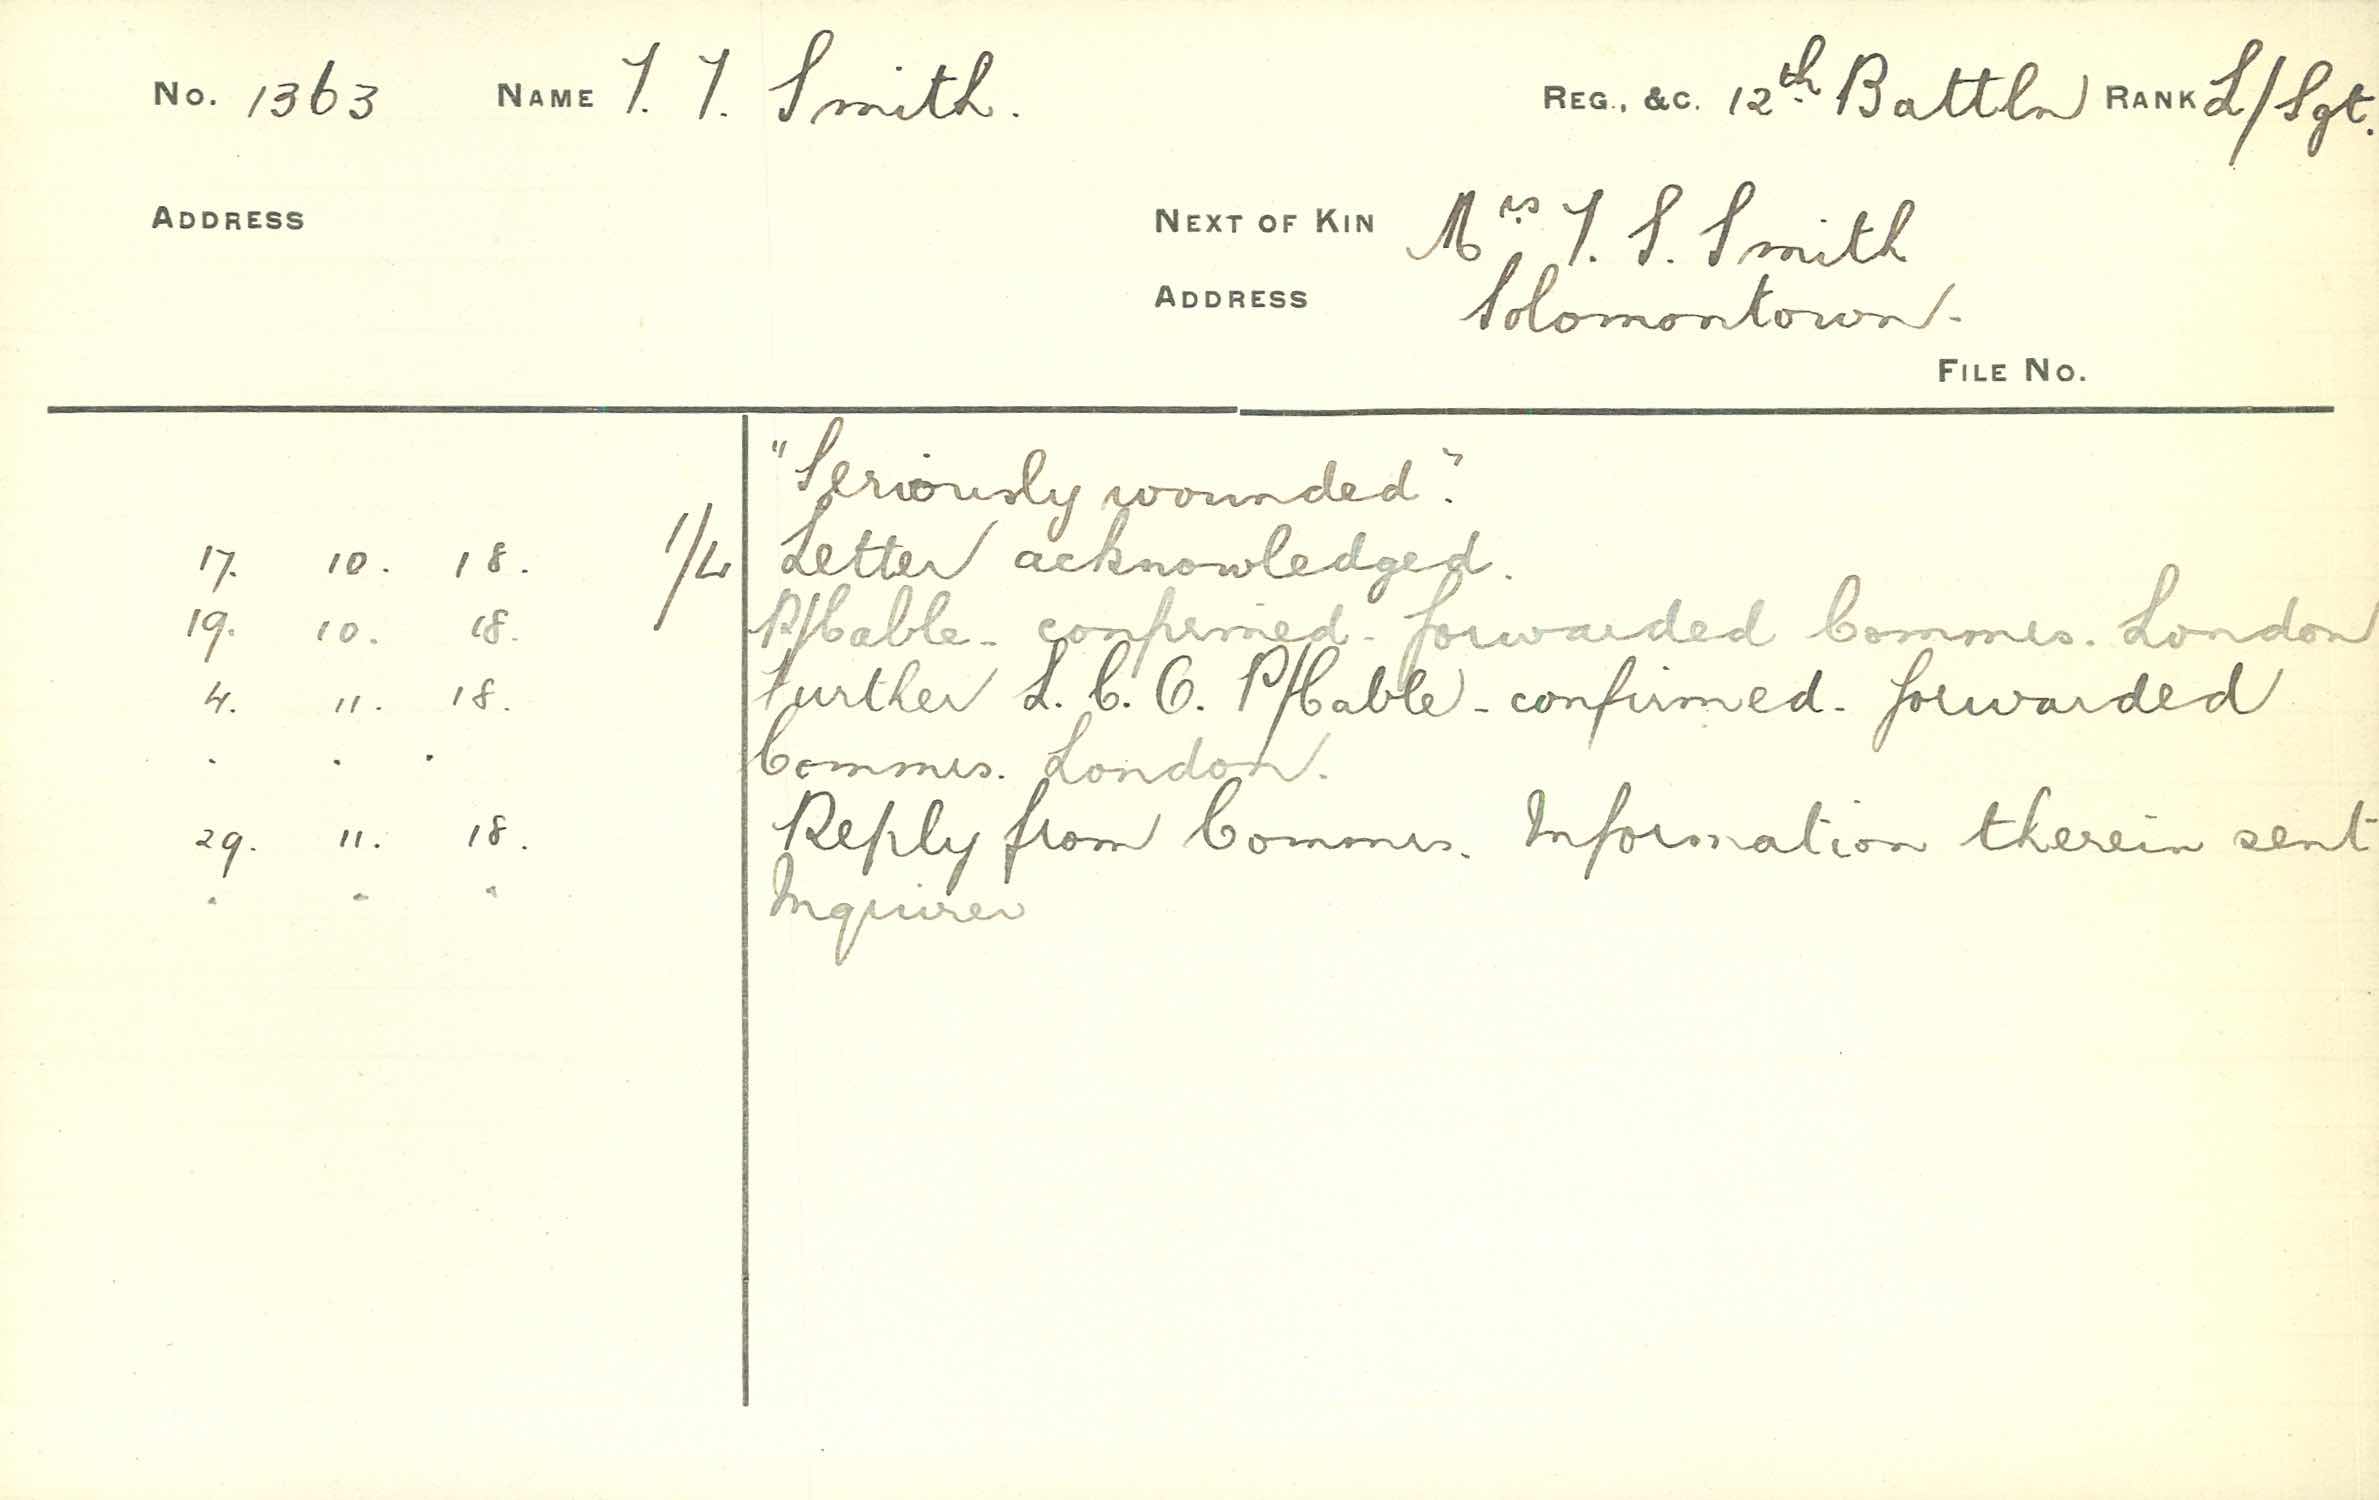 No. 1363 NAME T. T. Smith. REG., &C. 12th Battln RANK L/Sgt.
ADDRESS NEXT OF KIN Mrs T. S. Smith
ADDRESS Solomontown.
FILE No.
"Seriously wounded".
17. 10. 18. 1/L Letter acknowledged.
19. 10. 18. P/Cable - confirmed - forwarded Commrs. London
4. 11. 18. Further L. C. O. P/Cable - confirmed - forwarded
" " " Commrs. London.
29. 11. 18. Reply from Commrs. Information therein sent
" " " Inquirer